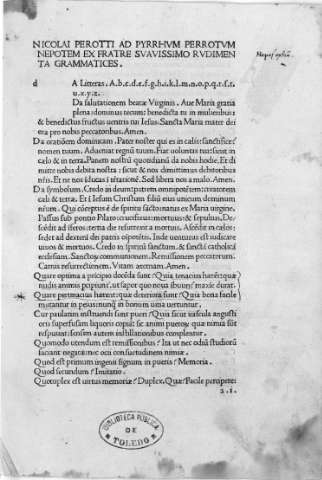 NICOLAI PEROTTI AD PYRRHVM PERROTVM
NEPOTEM EX FRATRE SVAVISSIMO RVDIMEN
TA GRAMMATICES.
d A Litteras. A.b.c.d.e.f.g.h.i.k.l.m.n.o.p.q.r.s.t.
u.x.y.z.
Da salutationem beatæ Virginis. Aue Maria gratia
plena: dominus tecum: benedicta tu in mulieribus:
& benedictus fructus uentris tui Iesus. Sancta Maria mater dei
ora pro nobis peccatoribus. Amen.
Da orationem dominicam. Pater noster qui es in cælis: sanctificet᷑
nomen tuum. Adueniat regnū tuum. Fiat uoluntas tua: sicut in
cælo & in terra. Panem nostrū quotidianū da nobis hodie. Et di
mitte nobis debita nostra: sicut & nos dimittimus debitoribus
nr̄is. Et ne nos īducas ī tētationē. Sed libera nos a malo. Amen.
Da symbolum. Credo in deum: patrem omnipotētem: creatorem
cæli & terræ. Et ī Iesum Christum filiū eius unicum dominum
nr̄um. Qui cōceptus ē de spiritu sācto: natus ex Maria uirgine.
Passus sub pontio Pilato: crucifixus: mortuus: & sepultus. De-
scēdit ad īferos: tertia die resurrexit a mortuis. Ascēdit in cælos:
sedet ad dexterā dei patris oīpotētis. Inde uenturus est iudicare
uiuos & mortuos. Credo in spiritū sanctum. & sanctā catholicā
ecclesiam. Sanctoȝ communionem. Remissionem peccatorum.
Carnis resurrectionem. Vitam æternam. Amen.
Quare optima a pricipio docēda sunt? Quia tenaciss hærēt: quæ
rudis animis pcipiunt᷑. ut sapor quo noua ībuēris maxīe durat.
Quare pertinacius hærent: quæ deteriora sunt? Quia bona facile
mutantur in peius: nunq̄ in bonum uitia uertuntur.
Cur paulatim instruendi sunt pueri? Quia sicut uascula angusti
oris superfusam liquoris copiā: sic animi pueroȝ quæ nimia sūt
respuunt: sensim autem instillationibus complentur.
Quomodo utendum est remissionibus? Ita ut nec odiū studiorū
faciant negatæ: nec ocii consuetudinem nimiæ.
Quod est primum ingenii signum in pueris? Memoria.
Quod secundum? Imitatio.
Quotuplex est uirtus memoriæ? Duplex. Quæ? Facile percipere:
a.i.
BIBLIOTECA PUBLICA
DE
TOLEDO